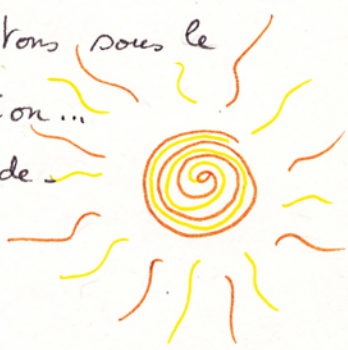 tons sous le
ion...
de -